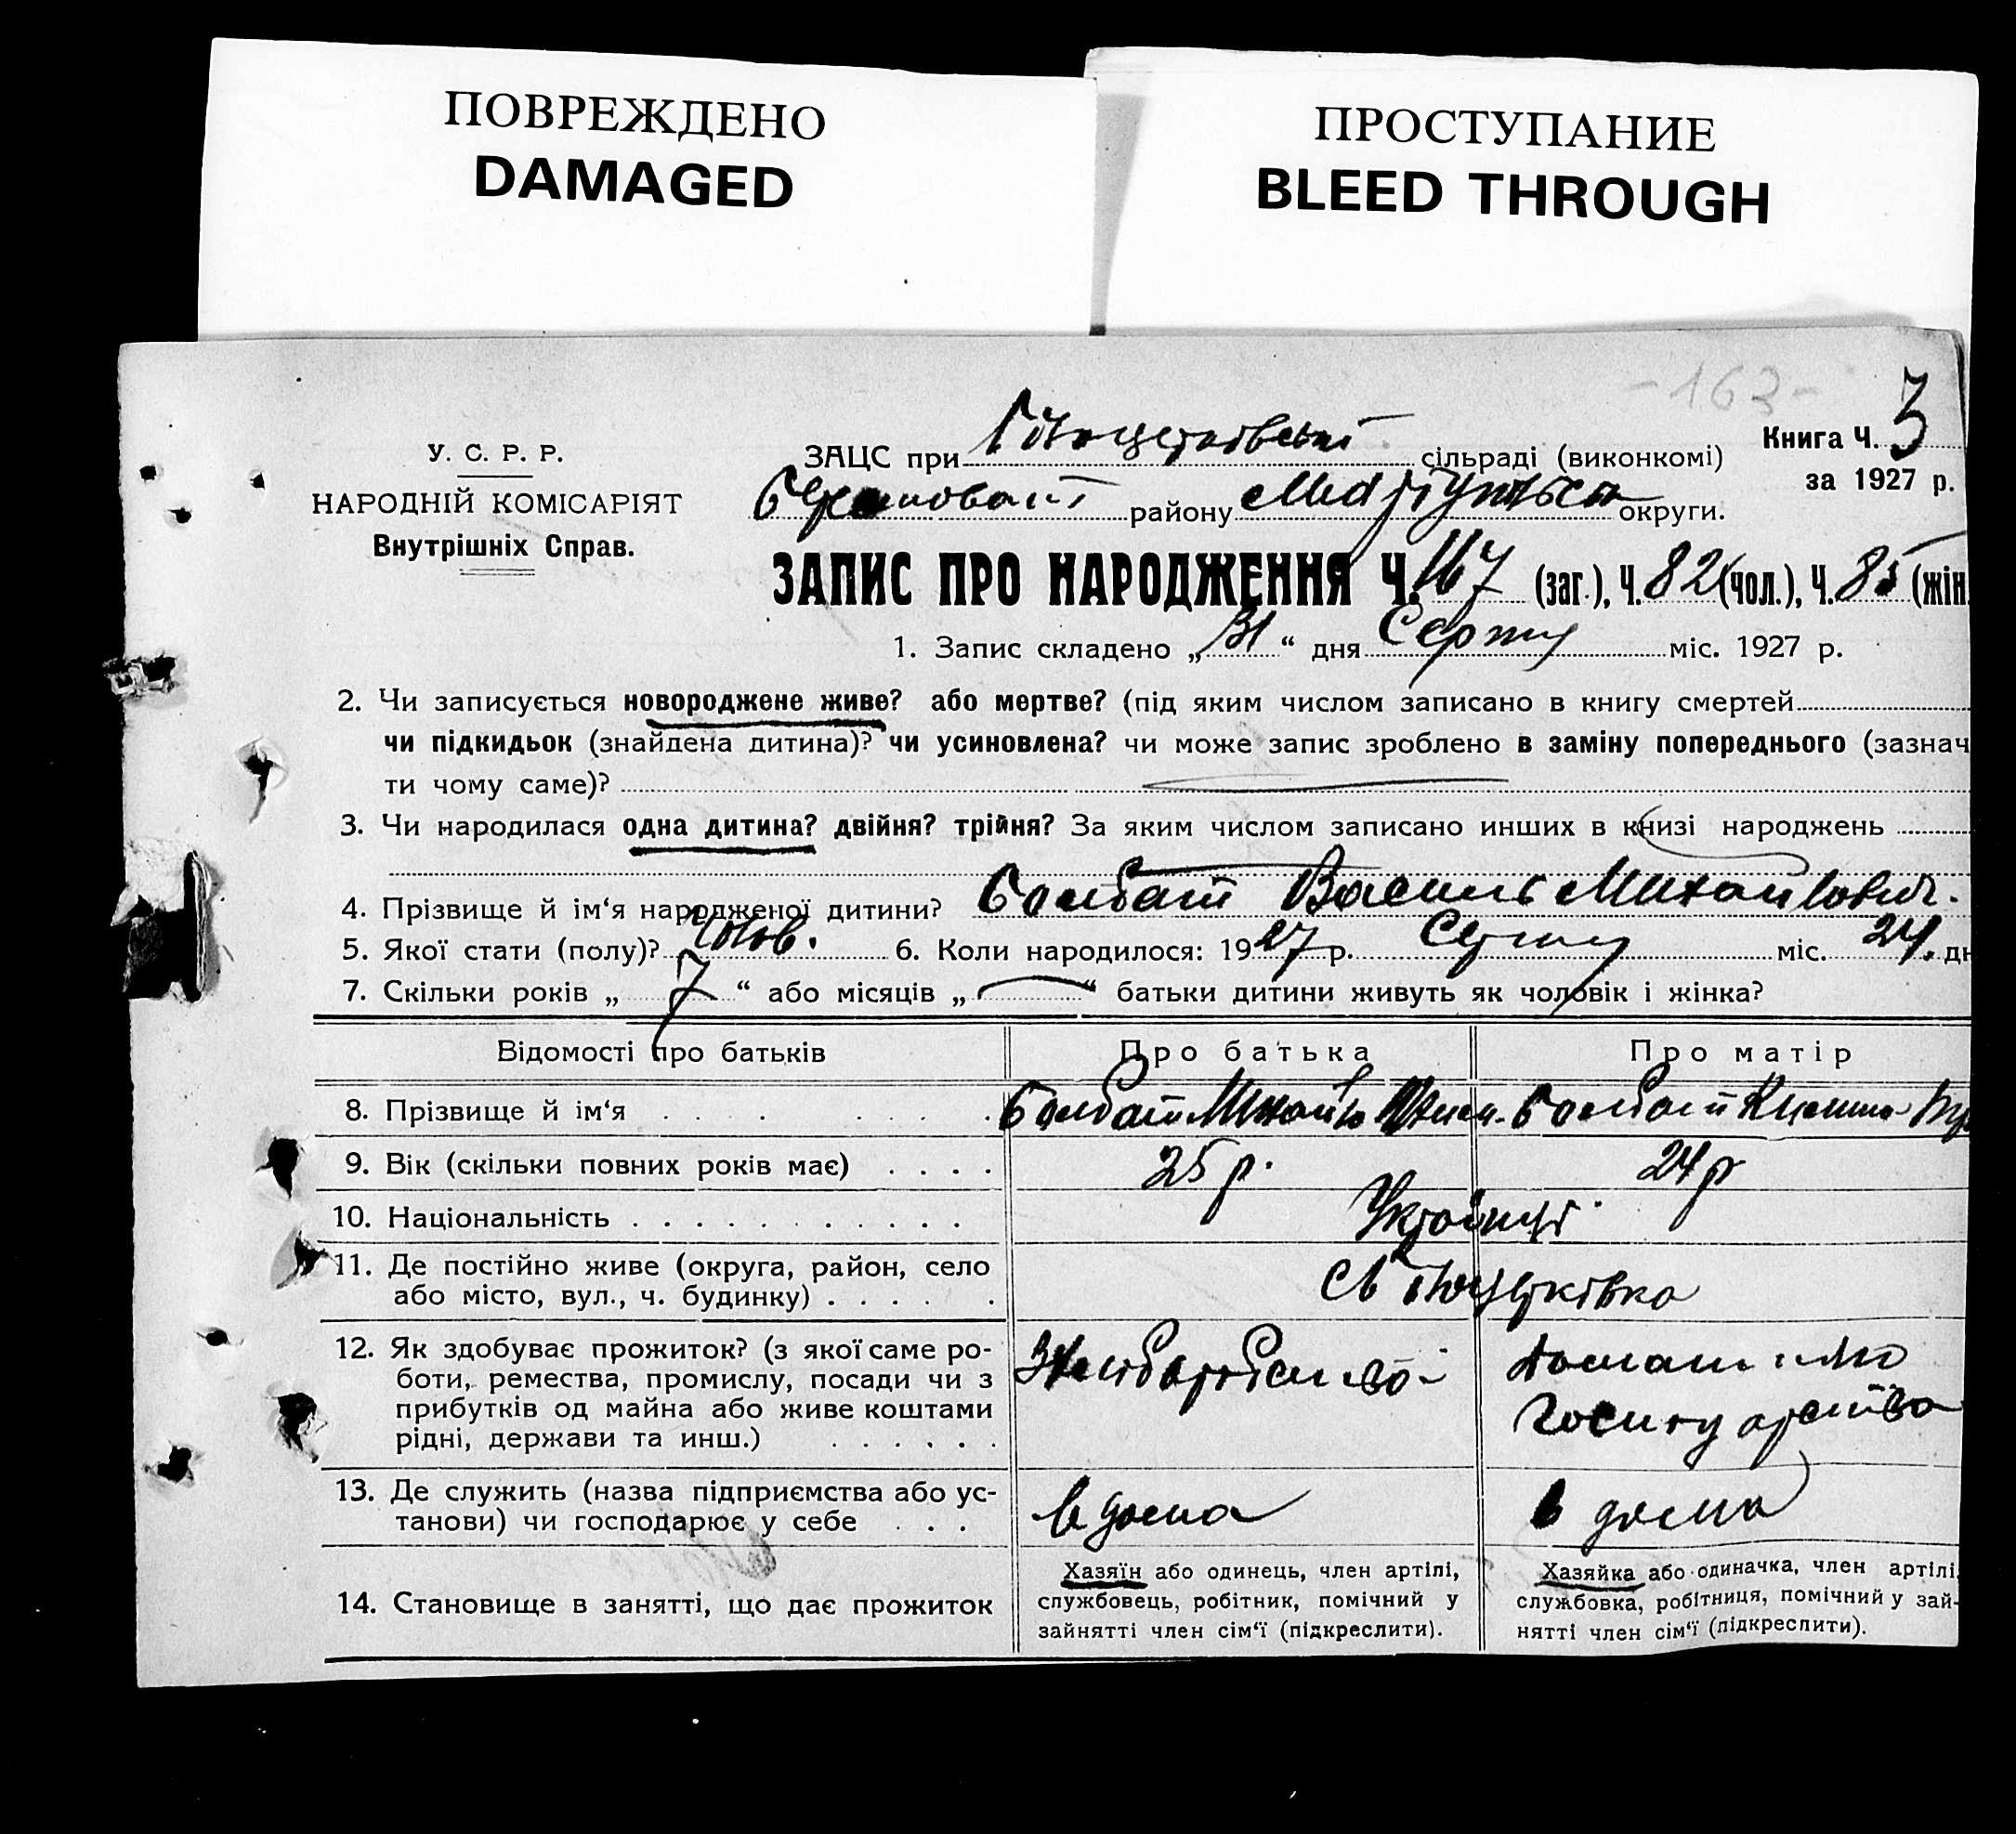 ПОВРЕЖДЕНО
DAMAGED
ПРОСТУПАНИЕ
BLEED THROUGH
-163-
У. С. Р. Р.
НАРОДНІЙ КОМІСАРІЯТ
Внутрішніх Справ.
ЗАЦС при сільраді (виконкомі)
Книга Ч. 3
за 1927 р.
району округи.
ЗАПИС ПРО НАРОДЖЕННЯ Ч. 167 (заг.), Ч. 82 (чол.), Ч. 85 (жін.
1. Запис складено „31“ дня Серпня міс. 1927 р.
2. Чи записується новороджене живе? або мертве? (під яким числом записано в книгу смертей
чи підкидьок (знайдена дитина)? чи усиновлена? чи може запис зроблено в заміну попереднього (зазнач
ти чому саме)?
3. Чи народилася одна дитина? двійня? трійня? За яким числом записано инших в книзі народжень
4. Прізвище й ім‘я народженої дитини? Василь Михайлович.
5. Якої стати (полу)? Чолов. 6. Коли народилося: 1927 р. Серпня міс. 24. дн
7. Скільки років „7“ або місяців „ “ батьки дитини живуть як чоловік і жінка?
Відомості про батьків Про батька Про матір
8. Прізвище й ім‘я Михайло
9. Вік (скільки повних років має) 25 р. 24 р
10. Національність Українці
11. Де постійно живе (округа, район, село
або місто, вул., ч. будинку)
12. Як здобуває прожиток? (з якої саме ро-
боти, ремества, промислу, посади чи з
прибутків од майна або живе коштами
рідні, держави та инш.)
Хліборобство
Домашнє
Господарство
13. Де служить (назва підприємства або ус-
танови) чи господарює у себе
в дома
в дома
14. Становище в занятті, що дає прожиток
Хазяїн або одинець, член артілі,
службовець, робітник, помічний у
зайнятті член сім‘ї (підкреслити).
Хазяйка або одиначка, член артілі,
службовка, робітниця, помічний у зай-
нятті член сім‘ї (підкреслити).